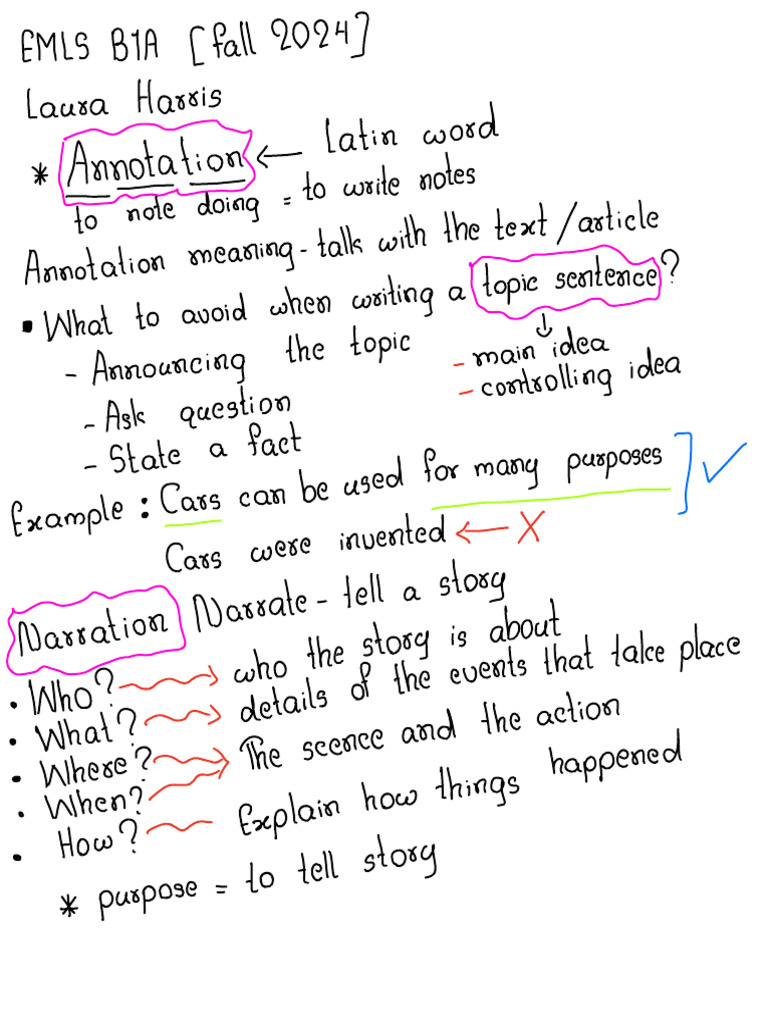 EMLS B1A [fall 2024]
Laura Harris
* Annotation ← Latin word
to note doing = to write notes
Annotation meaning - talk with the text / article
▪ What to avoid when writing a topic sentence?
- Announcing the topic
- main idea
- controlling idea
- Ask question
- State a fact
Example : Cars can be used for many purposes ✓
Cars were invented ← X
Narration Narrate - tell a story
• Who? → who the story is about
• What? → details of the events that take place
• Where? → The scence and the action
• When?
• How? Explain how things happened
* purpose = to tell story